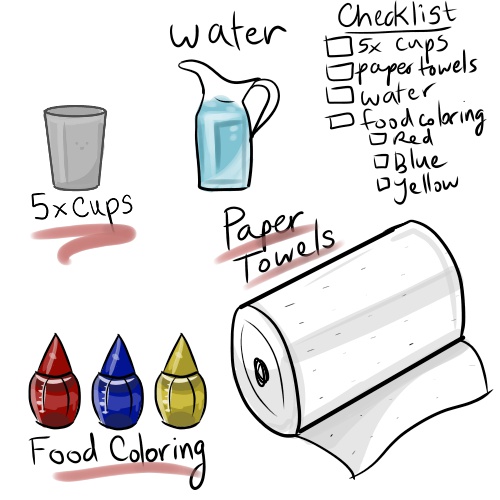 water
Checklist
5x cups
paper towels
water
food coloring
Red
Blue
yellow
5x Cups
Paper
Towels
Food Coloring